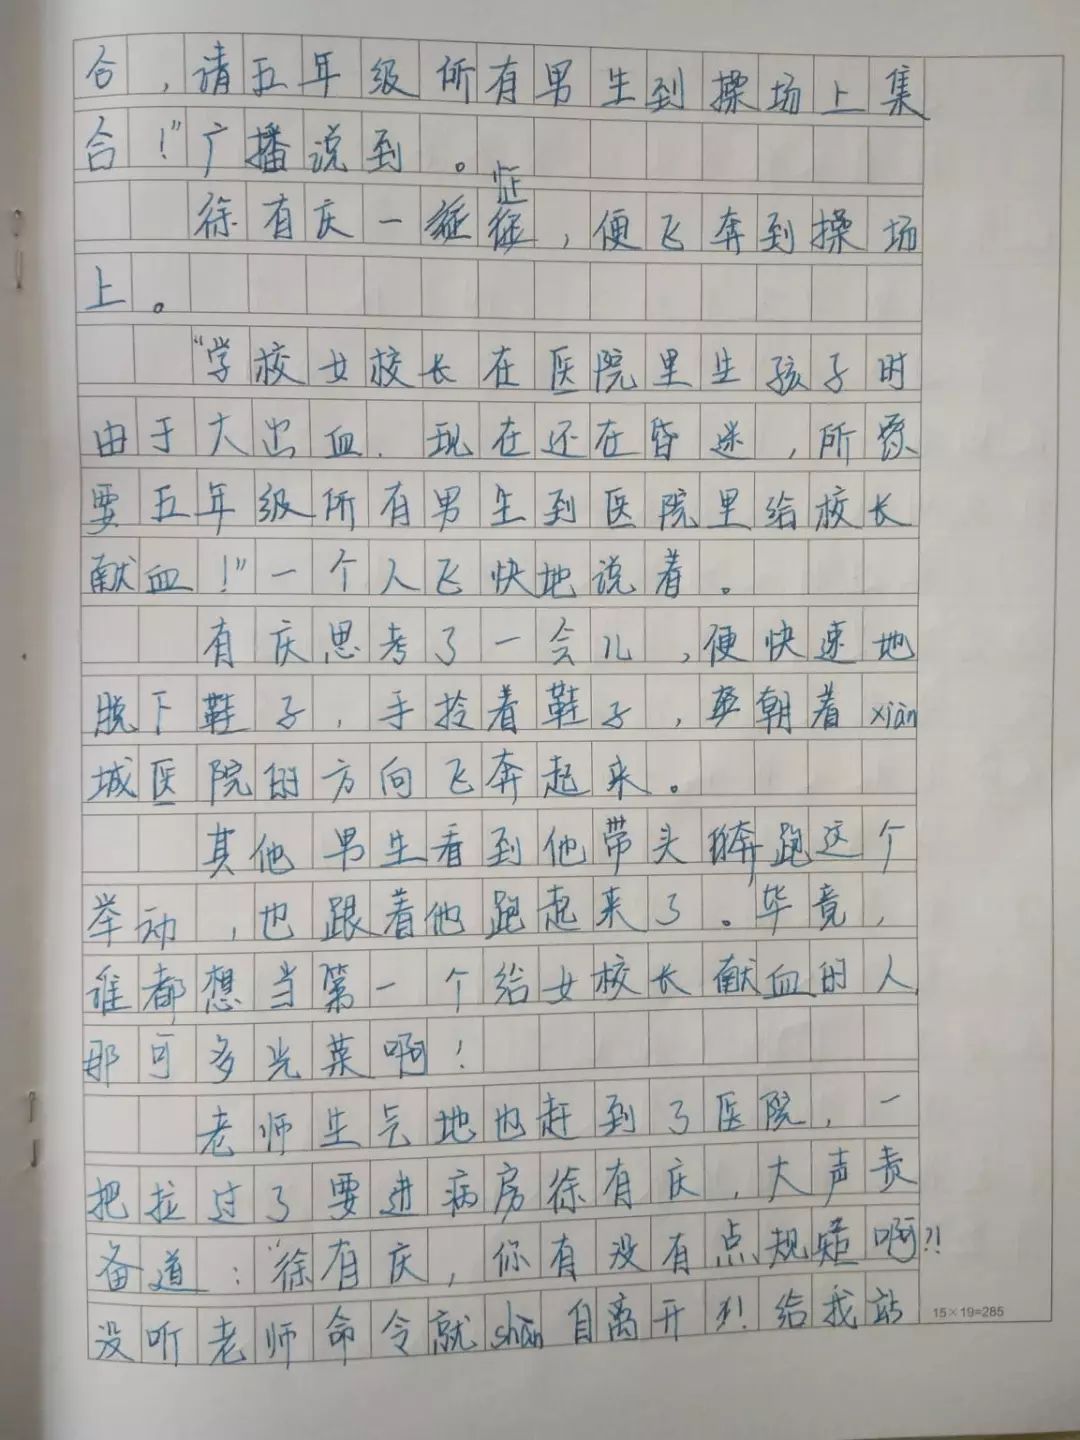 合，请五年级所有男生到操场上集
合！”广播说到。
徐有庆一怔，便飞奔到操场
上。
“学校女校长在医院里生孩子时
由于大出血．现在还在昏迷，所
要五年级所有男生到医院里给校长
献血！”一个人飞快地说着。
有庆思考了一会儿，便快速地
脱下鞋子，手拎着鞋子，朝着xiàn
城医院的方向飞奔起来。
其他男生看到他带头奔跑这个
举动，也跟着他跑起来了。毕竟，
谁都想当第一个给女校长献血的人
那可多光荣啊！
老师生气地也赶到了医院，一
把拉过了要进病房徐有庆，大声责
备道：“徐有庆，你有没有点规矩啊？！
没听老师命令就shàn自离开？！给我站
15×19=285